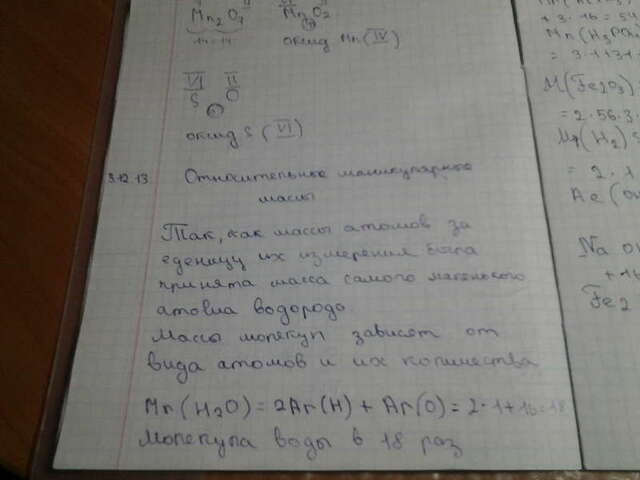 VII II
Mn2 O7
14:14
IV II
Mn2O2
оксид Mn(IV)
VI II
S O
6
оксид S (VI)
3.12.13. Относительное маликулярное
массы
Так, как массы атомов за
еденицу их измерения была
принята масса самого маленького
атома водородо.
Массы молекул зависят от
вида атомов и их количества
Mr(H2O) = 2Ar(H) + Ar(O) = 2·1+16=18
Молекула воды в 18 раз
+ 3·16 =
M(Fe2O3) =
= 2·56·3·
Mr(H2) =
= 2·1
Na
Fe2